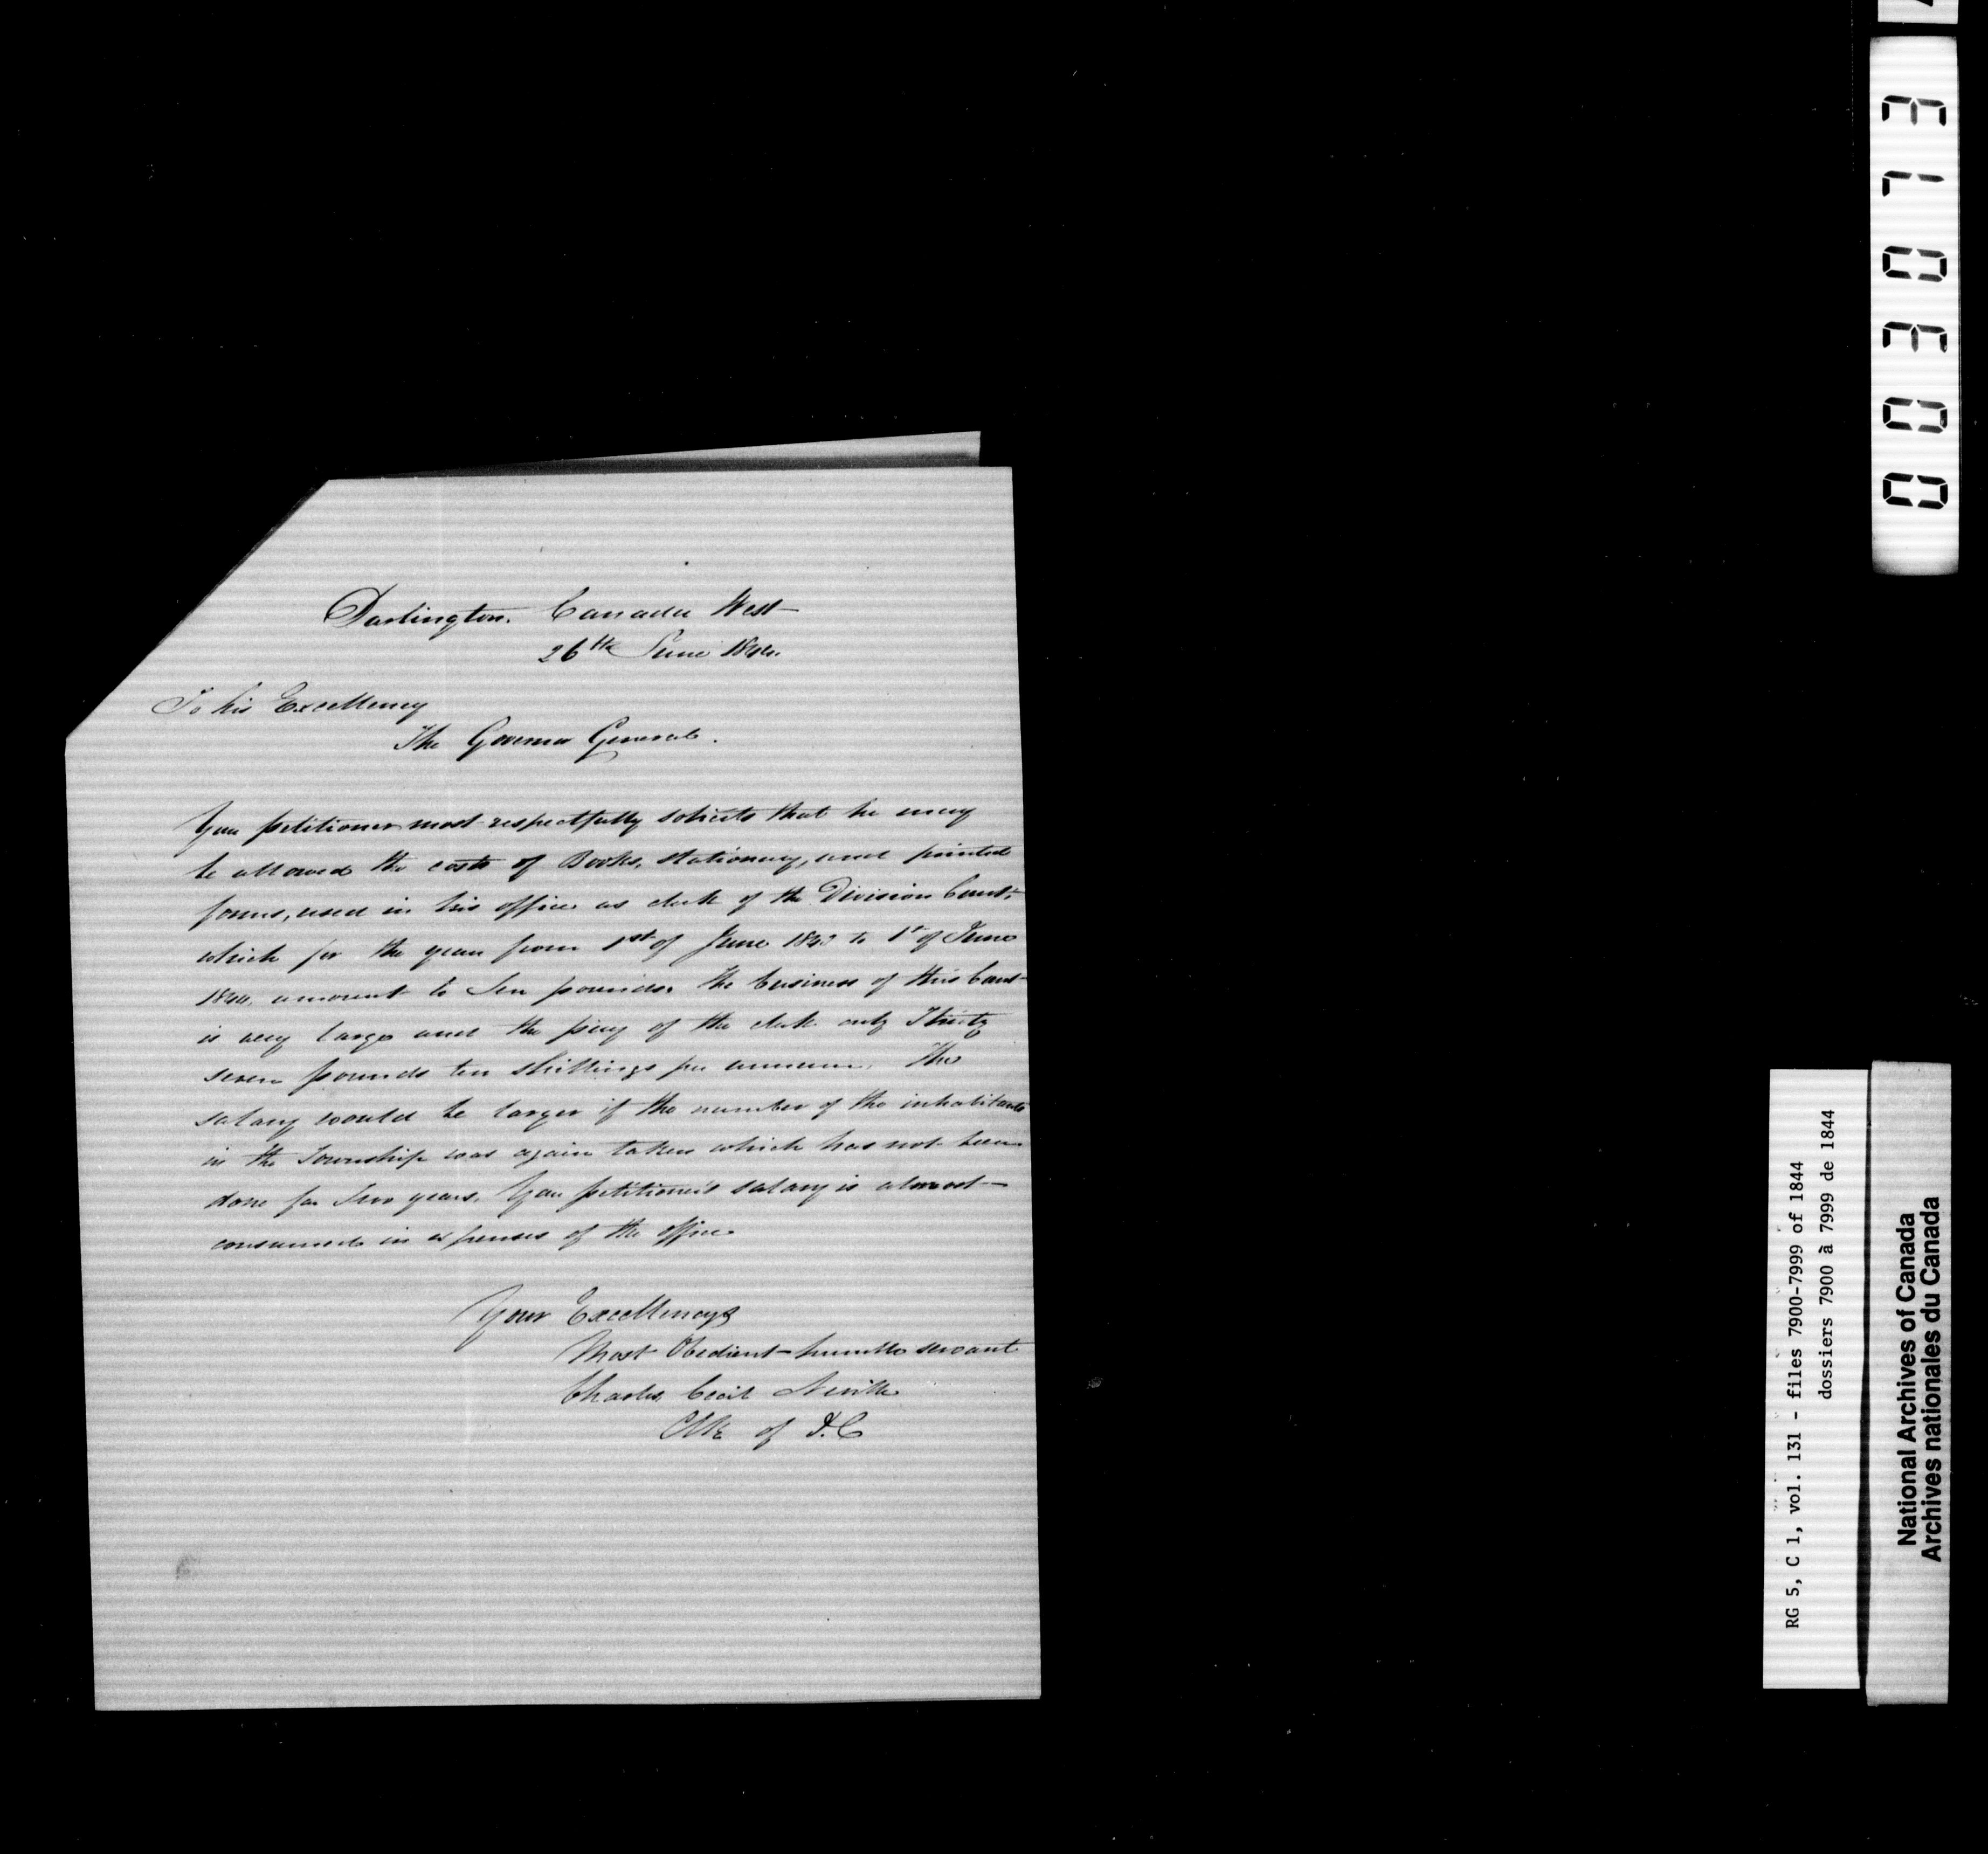 Darlington. Canada West
26th June 1844.
To his Excellency
The Governor General.
Your petitioner most respectfully solicits that he may
be allowed the costs of Books, stationary, and printed
forms, used in his office as clerk of the Division Court,
which for the year from 1st of June 1843 to 1st of June
1844, amount to Ten pounds. The business of this Court
is very large and the pay of the clerk only Thirty
seven pounds ten shillings per annum. The
salary would be larger if the number of the inhabitants
in the Township was again taken which has not been
done for Two years. Your petitioner's salary is almost
consumed in expenses of the office
Your Excellencys
Most Obedient humble servant
Charles Cecil Neville
Clk of D.C
003013
RG 5, C 1, vol. 131 - files 7900-7999 of 1844
dossiers 7900 à 7999 de 1844
National Archives of Canada
Archives nationales du Canada